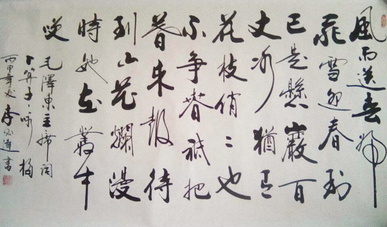 風雨送春歸
飛雪迎春到
已是懸巖百
丈冰猶有
花枝俏〻也
不爭春祇把
春來報待
到山花爛漫
時她在叢中
咲 毛澤東主席詞
卜算子咏梅
丙申年 李 書